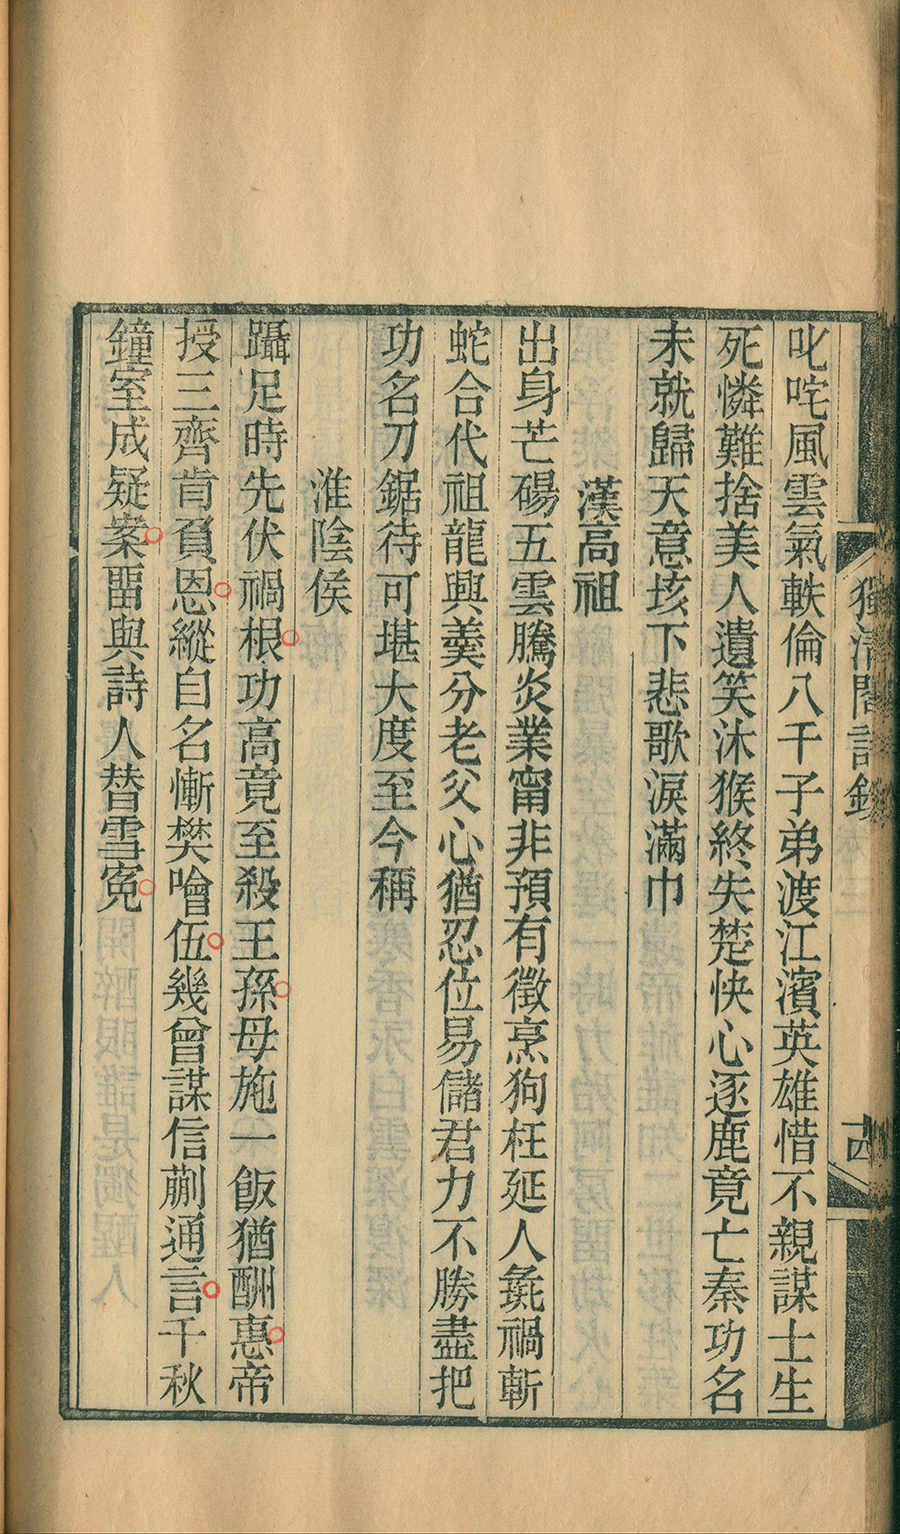 獨清閣詩鈔
十四
叱咤風雲氣軼倫八千子弟渡江濱英雄惜不親謀士生
死憐難捨美人遺笑沐猴終失楚快心逐鹿竟亡秦功名
未就歸天意垓下悲歌淚滿巾
漢高祖
出身芒碭五雲騰炎業甯非預有徵烹狗枉延人彘禍斬
蛇合代祖龍興羹分老父心猶忍位易儲君力不勝盡把
功名刀鋸待可堪大度至今稱
淮陰侯
躡足時先伏禍根功高竟至殺王孫母施一飯猶酬惠帝
授三齊肯負恩縱自名慚樊噲伍幾曾謀信蒯通言千秋
鐘室成疑案畱與詩人替雪冤